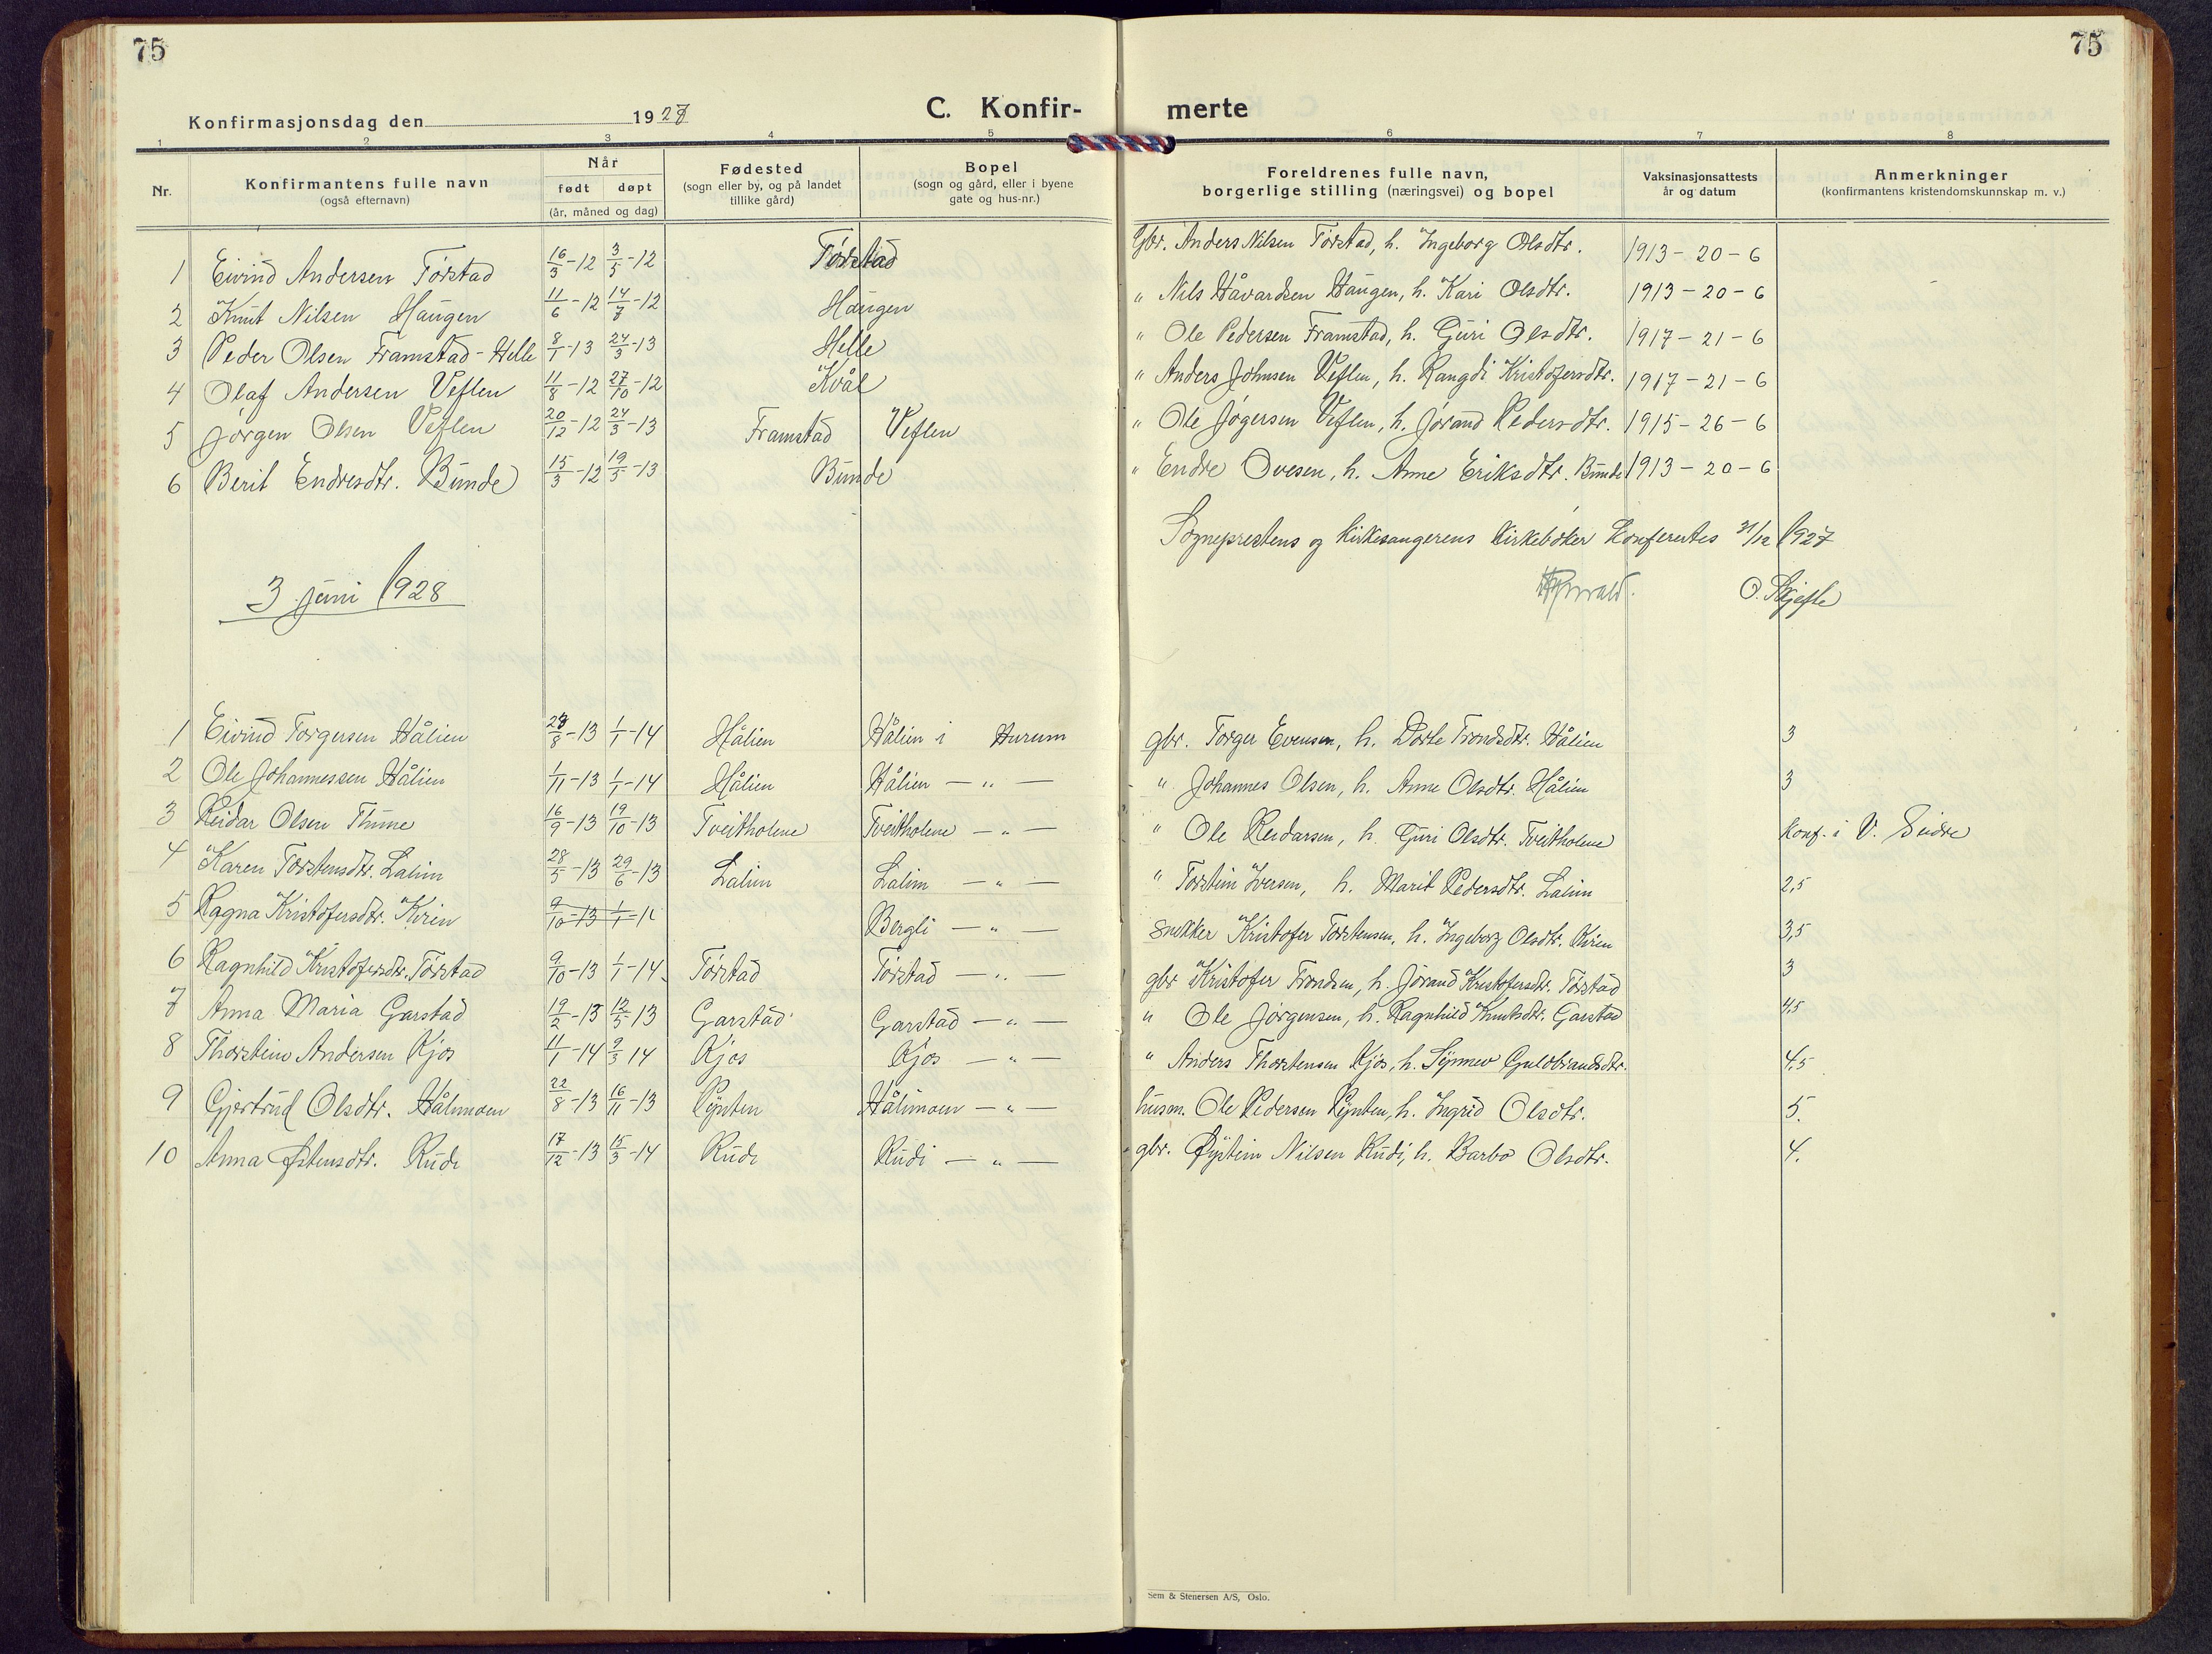 75
75
Konfirmasjonsdag den 1927
C. Konfir-
merte
1 2 3 4 5 6 7 8
Nr.
Konfirmantens fulle navn
(også efternavn)
Når
født døpt
(år, måned og dag)
Fødested
(sogn eller by, og på landet
tillike gård)
Bopel
(sogn og gård, eller i byene
gate og hus-nr.)
Foreldrenes fulle navn,
borgerlige stilling (næringsvei) og bopel
Vaksinasjonsattests
år og datum
Anmerkninger
(konfirmantens kristendomskunnskap m. v.)
1 Eivind Andersen Tørstad 16/3-12 3/5-12 Tørstad Gbr. Anders Nilsen Tørstad, h. Ingeborg Olsdtr. 1913-20-6
2 Knut Nilsen Haugen 11/6-12 14/7-12 Haugen " Nils Håvardsen Haugen, h. Kari Olsdtr. 1913-20-6
3 Peder Olsen Framstad-Helle 8/1-13 24/3-13 Helle " Ole Pedersen Framstad, h. Guri Olsdtr. 1917-21-6
4 Olaf Andersen Veflen 11/8-12 27/10-12 Kvål " Anders Johnsen Veflen, h. Rangdi Kristofersdtr. 1917-21-6
5 Jørgen Olsen Veflen 20/12-12 24/3-13 Framstad Veflen " Ole Jøgersen Veflen, h. Jørand Pedersdtr. 1915-26-6
6 Berit Endresdtr. Bunde 15/3-12 19/5-13 Bunde " Endre Ovesen, h. Anne Eriksdtr. Bunde 1913-20-6
Sogneprestens og kirkesangerens kirkebøker konferertes 31/12 1927
O. Skjefte
3 juni 1928
1 Eivind Torgersen Hålien /8-13 1/1-14 Hålien Hålien i Hurum gbr. Torger Evensen, h. Dorte Trondsdtr. Hålien 3
2 Ole Johannessen Hålien 1/11-13 1/1-14 Hålien Hålien — " — " Johannes Olsen, h. Anne Olsdtr. Hålien 3
3 Reidar Olsen Thune 16/9-13 19/10-13 Tveitholene Tveitholene — " — " Ole Reidarsen, h. Guri Olsdtr. Tveitholene konf. i V. Slidre
4 Karen Torstensdtr. Lalim 28/5-13 29/6-13 Lalim Lalim — " — " Torstein Iversen, h. Marit Pedersdtr. Lalim 2,5
5 Ragna Kristofersdtr. Kvien 9/10-13 1/1-1 Bergli — " — snekker Kristofer Torstensen, h. Ingeborg Olsdtr. Kvien 3,5
6 Ragnhild Kristofersdtr. Tørstad 9/10-13 1/1-14 Tørstad Tørstad — " — gbr Kristofer Trondsen, h. Jørand Kristofersdtr. Tørstad 3
7 Anna Maria Garstad 19/2-13 12/5 13 Garstad Garstad — " — " Ole Jørgensen, h. Ragnhild Knutsdtr. Garstad 4,5
8 Thorstein Andersen Kjos 11/1-14 9/3 14 Kjos Kjos — " — " Anders Thorstensen Kjos, h. Synnev Guldbrandsdtr. 4,5
9 Gjertrud Olsdtr. Hålimoen 22/8-13 16/11-13 Pynten Hålimoen — " — husm. Ole Pedersen Pynten, h. Ingrid Olsdtr. 5.
10 Anna Østensdtr. Rudi 17/12-13 15/3-14 Rudi Rudi — " — gbr. Øystein Nilsen Rudi, h. Barbo Olsdtr. 4.
Sem & Stenersen A/S, Oslo.